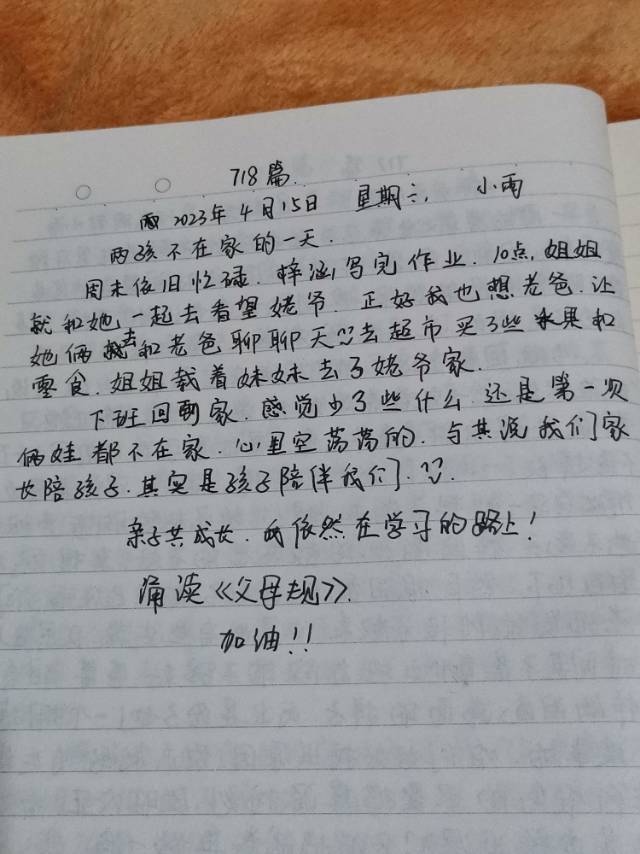 718篇.
2023年4月15日 星期六. 小雨
两孩不在家的一天.
周末依旧忙碌. 梓涵写完作业. 10点, 姐姐
就和她一起去看望姥爷. 正好我也想老爸. 让
她俩去和老爸聊聊天去超市买了些水果和
零食. 姐姐载着妹妹去了姥爷家.
下班回到家. 感觉少了些什么. 还是第一次
俩娃都不在家. 心里空荡荡的. 与其说我们家
长陪孩子. 其实是孩子陪伴我们.
亲子共成长. 我依然在学习的路上!
诵读《父母规》.
加油!!